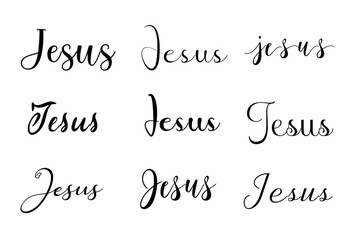 Jesus Jesus jesus
Jesus Jesus Jesus
Jesus Jesus Jesus